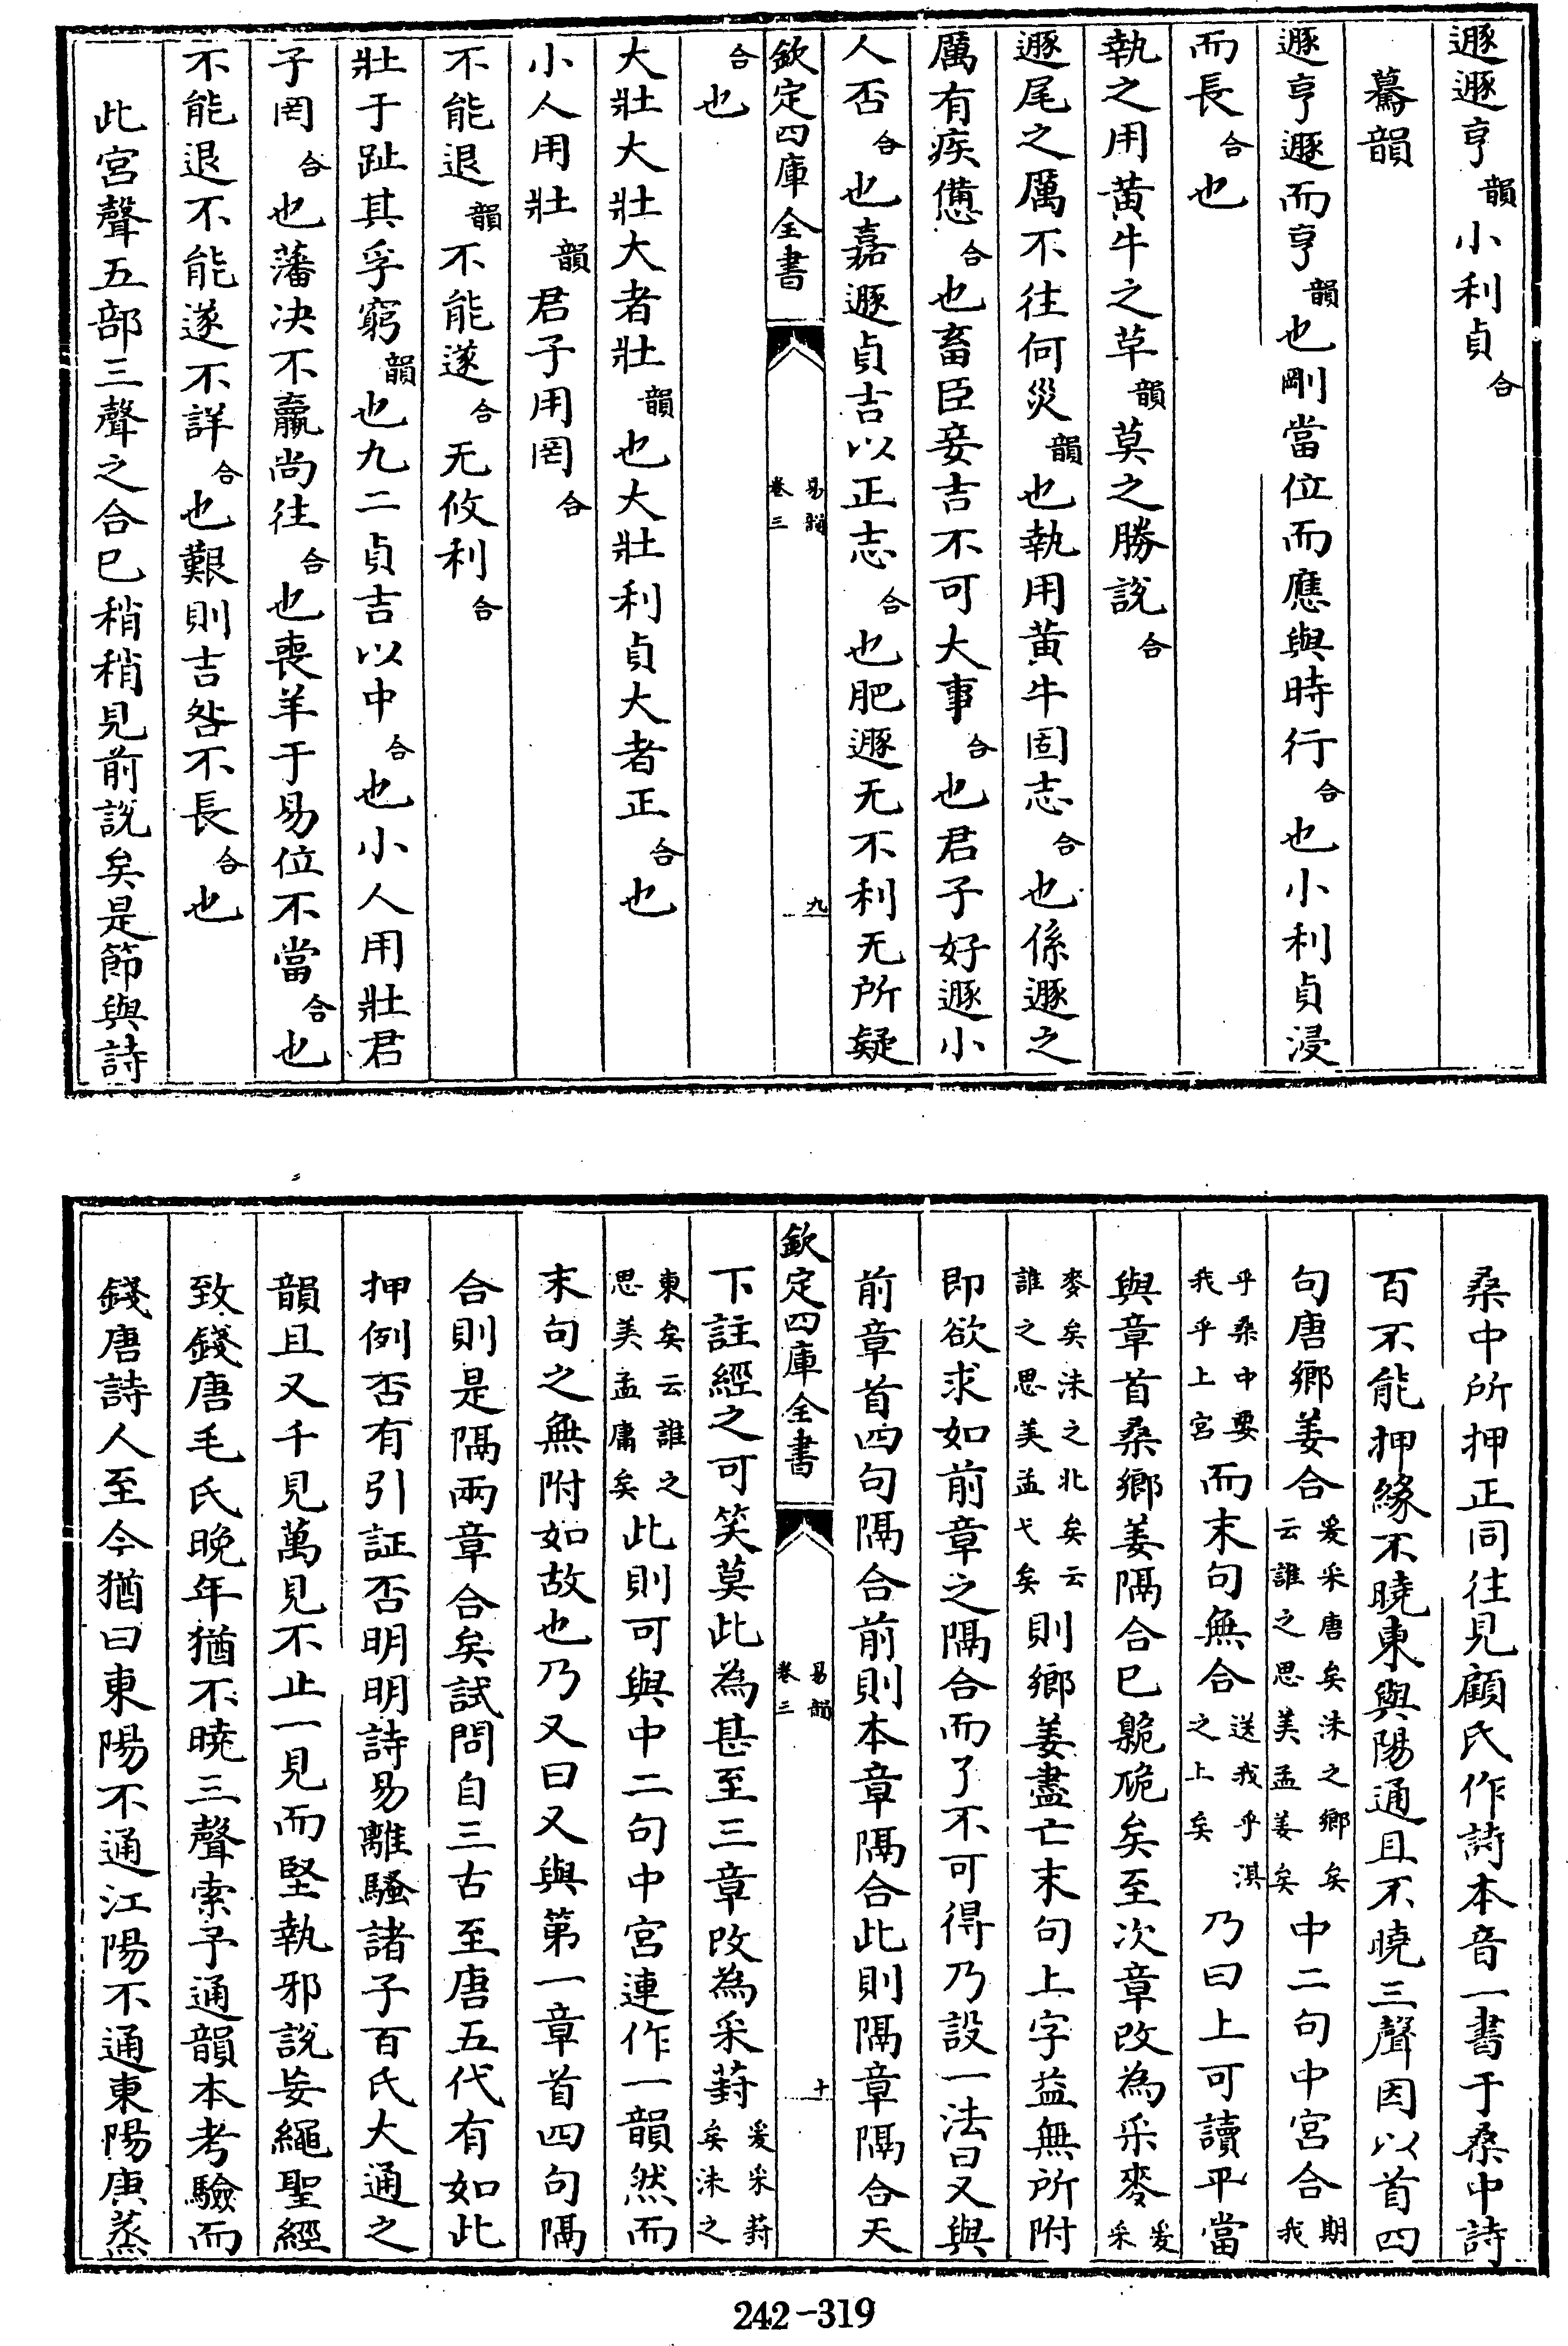 遯遯亨韻小利貞合
驀韻
遯亨遯而亨韻也剛當位而應與時行合也小利貞浸
而長合也
執之用黄牛之草韻莫之勝說合
遯尾之厲不往何災韻也執用黄牛固志合也係遯之
厲有疾憊合也畜臣妾吉不可大事合也君子好遯小
人否合也嘉遯貞吉以正志合也肥遯无不利无所疑
欽定四庫全書
易韻
卷三
九
合也
大壯大壯大者壯韻也大壯利貞大者正合也
小人用壯韻君子用罔合
不能退韻不能遂合无攸利合
壯于趾其孚窮韻也九二貞吉以中合也小人用壯君
子罔合也藩决不羸尚往合也喪羊于易位不當合也
不能退不能遂不詳合也艱則吉咎不長合也
此宮聲五部三聲之合巳稍稍見前說矣是節與詩
桑中所押正同往見顧氏作詩本音一書于桑中詩
百不能押緣不曉東與陽通且不曉三聲因以首四
句唐鄉姜合爰采唐矣沬之鄉矣云誰之思美孟姜矣中二句中宮合期我
乎桑中要我乎上宮而末句無合送我乎淇之上矣乃曰上可讀平當
與章首桑鄉姜隔合巳臲卼矣至次章改為采麥爰采
麥矣沬之北矣云誰之思美孟弋矣則鄉姜盡亡末句上字益無所附
即欲求如前章之隔合而了不可得乃設一法曰又與
前章首四句隔合前則本章隔合此則隔章隔合天
欽定四庫全書
易韻
卷三
十
下註經之可笑莫此為甚至三章改為采葑爰采葑矣沬之
東矣云誰之思美孟庸矣此則可與中二句中宮連作一韻然而
末句之無附如故也乃又曰又與第一章首四句隔
合則是隔兩章合矣試問自三古至唐五代有如此
押例否有引証否明明詩易離騷諸子百氏大通之
韻且又千見萬見不止一見而堅執邪說妄繩聖經
致錢唐毛氏晚年猶不曉三聲索予通韻本考驗而
錢唐詩人至今猶曰東陽不通江陽不通東陽庚蒸
242-319